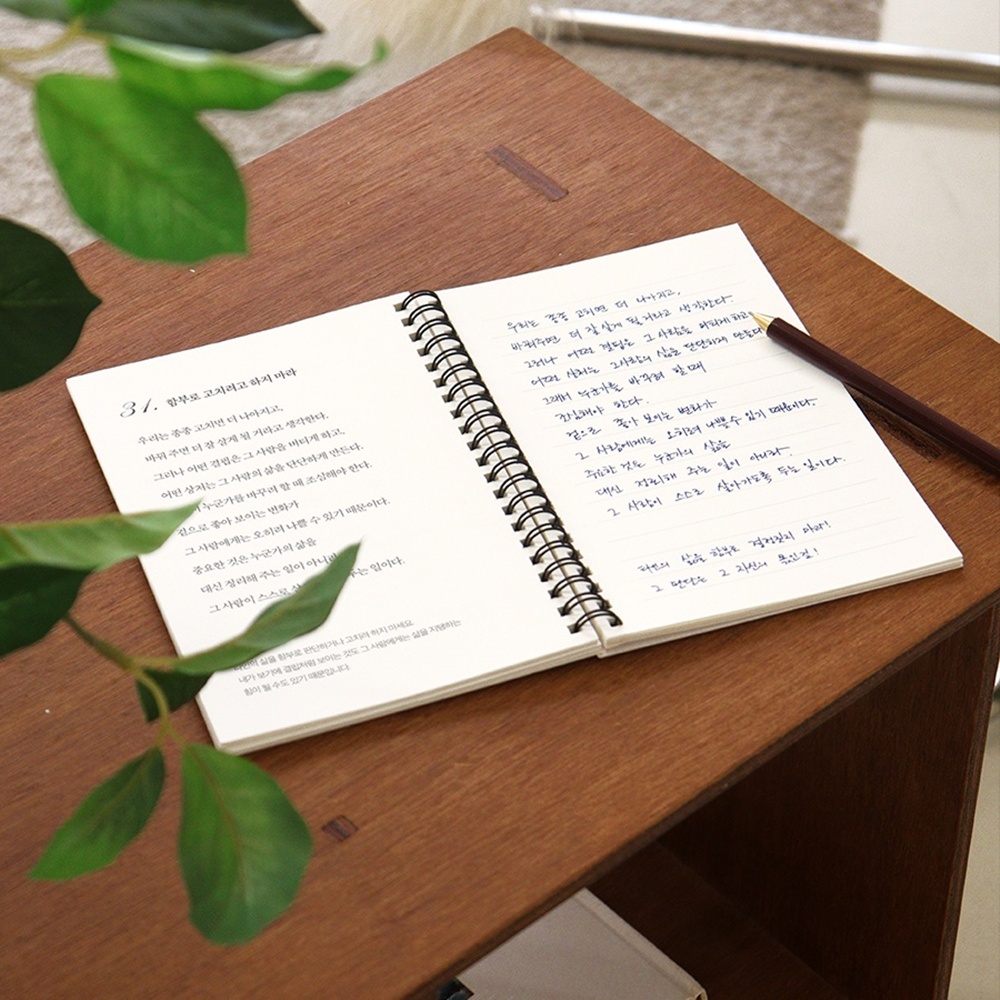 31. 함부로 고치려고 하지 마라
우리는 종종 고치면 더 나아지고,
바꿔 주면 더 잘 살게 될 거라고 생각한다.
그러나 어떤 결핍은 그 사람을 버티게 하고,
어떤 상처는 그 사람의 삶을 단단하게 만든다.
누군가를 바꾸려 할 때 조심해야 한다.
겉으로 좋아 보이는 변화가
그 사람에게는 오히려 나쁠 수 있기 때문이다.
중요한 것은 누군가의 삶을
대신 정리해 주는 일이
그 사람이 스스로 는 일이다.
삶을 함부로 판단하거나 고치려 하지 마세요.
내가 보기에 결핍처럼 보이는 것도 그 사람에게는 삶을 지탱하는
힘이 될 수도 있기 때문입니다.
우리는 종종 고치면 더 나아지고,
바꿔주면 더 잘 살게 될 거라고 생각한다.
그러나 어떤 결핍은 그 사람을 버티게 하고
어떤 상처는 그사람의 삶을 단단하게 만든다
그래서 누군가를 바꾸려 할 때
조심해야 한다.
겉으로 좋아 보이는 변화가
그 사람에게는 오히려 나쁠 수 있기 때문이다.
중요한 것은 누군가의 삶을
대신 정리해 주는 일이 아니라.
그 사람이 스스로 살아가도록 두는 일이다.
타인의 삶을 함부로 결정짓지 마라!
그 판단은 그 자신의 몫인걸!